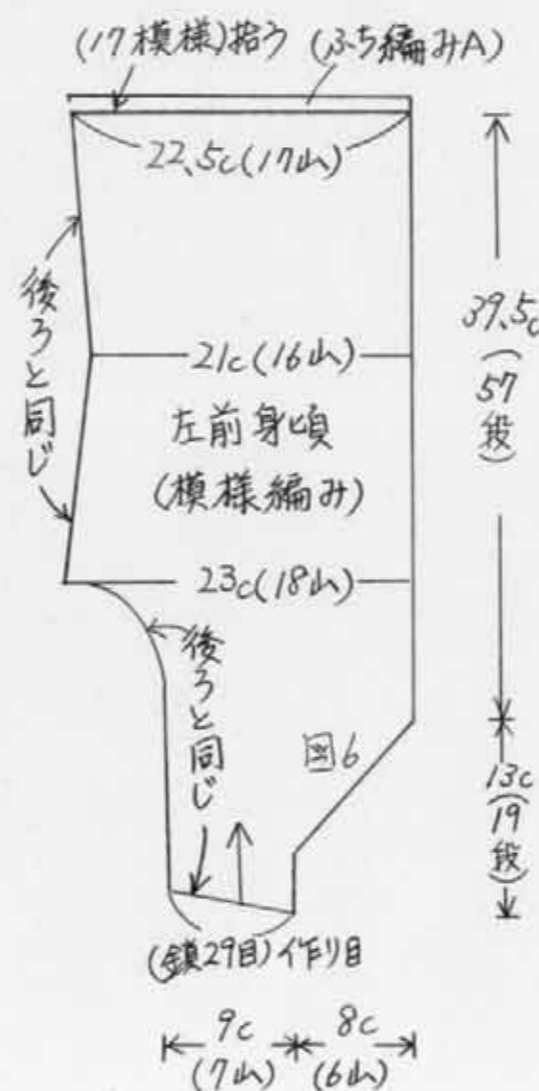 (17模様)拾う (ふち編みA)
22.5c(17山)
後ろと同じ
39.5c
(57段)
21c(16山)
左前身頃
(模様編み)
23c(18山)
後ろと同じ
図6
13c
(19段)
(鎖29目)作り目
9c
(7山)
8c
(6山)